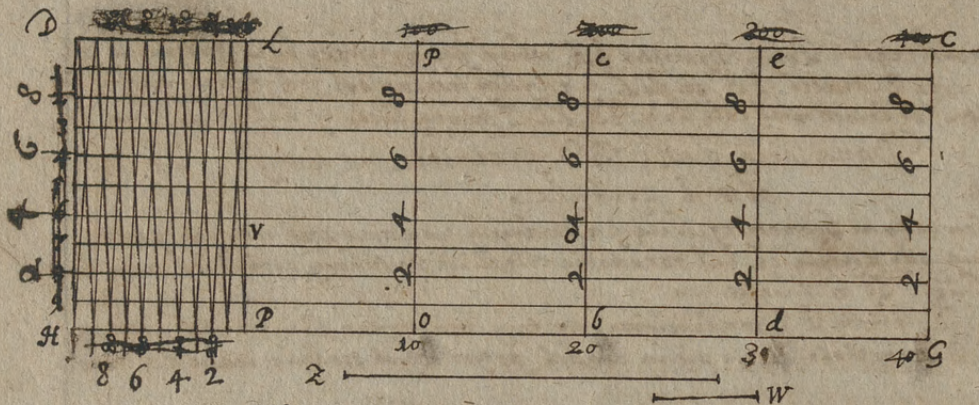 D L P c e C
8 8 8 8 8
6 6 6 6 6
4 4 4 4 4
V
2 2 2 2 2
H P o b d
8 6 4 2 10 20 3 40 G
Z W